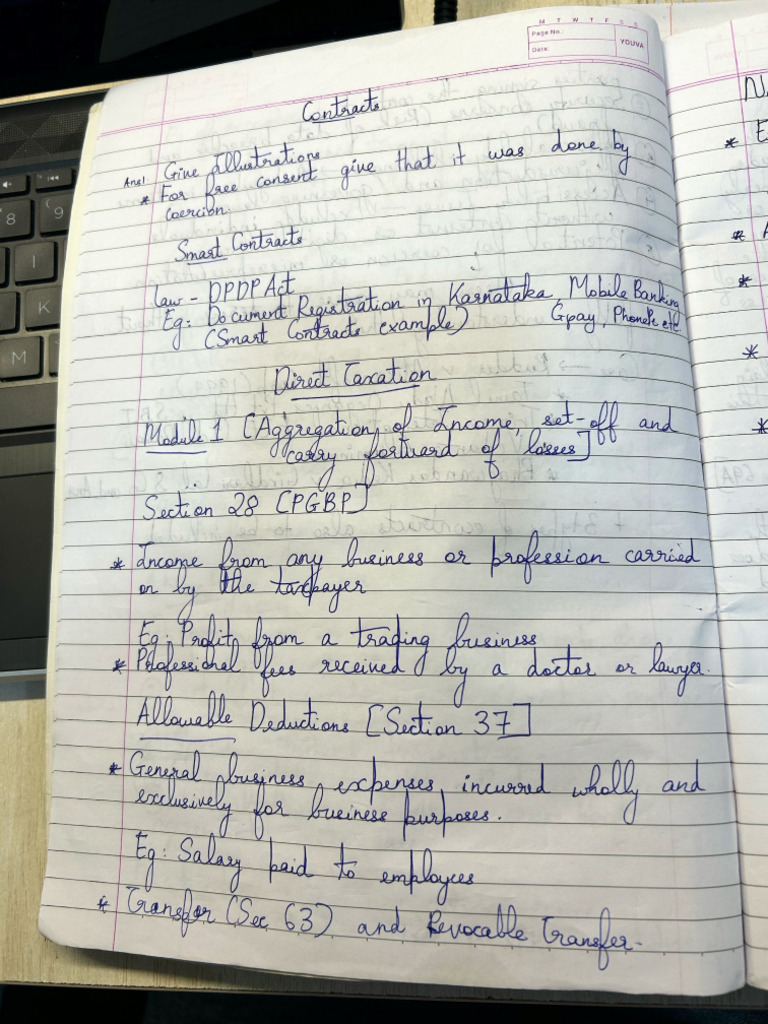 M T W T F S S
Page No.:
Date:
YOUVA
Contracts
Ans1 Give Illustrations
* For free consent give that it was done by
coercion.
Smart Contracts
law - DPDP Act
Eg: Document Registration in Karnataka, Mobile Banking
(Smart Contracts example) Gpay, PhonePe etc
Direct Taxation
Module 1 [Aggregation of Income, set-off and
carry forward of losses]
Section 28 [PGBP]
* Income from any business or profession carried
on by the taxpayer
Eg: Profit from a trading business
* Professional fees received by a doctor or lawyer.
Allowable Deductions [Section 37]
* General business expenses incurred wholly and
exclusively for business purposes.
Eg: Salary paid to employees
* Transfer (Sec 63) and Revocable Transfer.
8
9
I
K
M